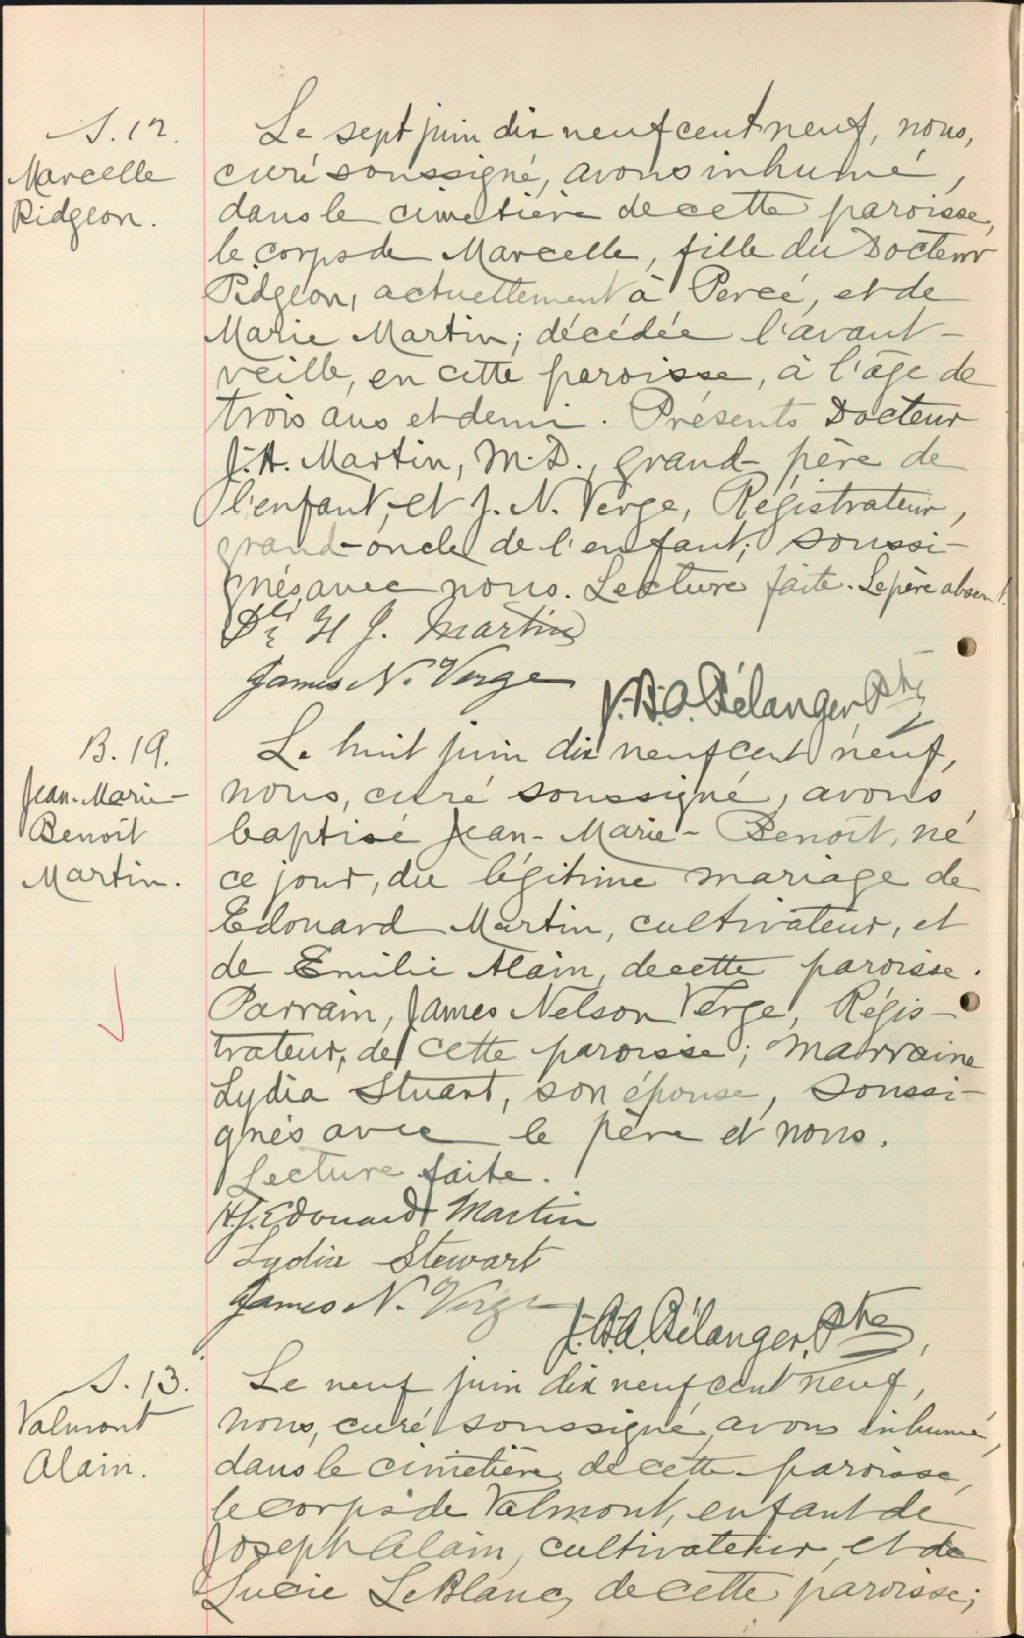 S. 12.
Marcelle
Pidgeon.
Le sept juin dix neuf cent neuf, nous,
curé soussigné, avons inhumé,
dans le cimetière de cette paroisse,
le corps de Marcelle, fille du Docteur
Pidgeon, actuellement à Percé, et de
Marie Martin; décédée l'avant-
veille, en cette paroisse, à l'âge de
trois ans et demi. Présents Docteur
J. H. Martin, M.D., grand-père de
l'enfant, et J. N. Verge, Régistrateur,
grand-oncle de l'enfant; soussi-
gnés avec nous. Lecture faite. Le père absent.
Dr H J. Martin
James N. Verge
J.B.A. Bélanger, Ptre
B. 19.
Jean-Marie-
Benoît
Martin.
Le huit juin dix neuf cent neuf,
nous, curé soussigné, avons
baptisé Jean-Marie-Benoît, né
ce jour, du légitime mariage de
Edouard Martin, cultivateur, et
de Emilie Alain, de cette paroisse.
Parrain, James Nelson Verge, Régis-
trateur, de cette paroisse; marraine
Lydia Stuart, son épouse, soussi-
gnés avec le père et nous.
Lecture faite.
H.J. Edouard Martin
Lydia Stewart
James N. Verge
J.B.A. Bélanger, Ptre,
S. 13.
Valmont
Alain.
Le neuf juin dix neuf cent neuf,
nous, curé soussigné, avons inhumé,
dans le cimetière de cette paroisse,
le corps de Valmont, enfant de
Joseph Alain, cultivateur, et de
Lucie LeBlanc, de cette paroisse;